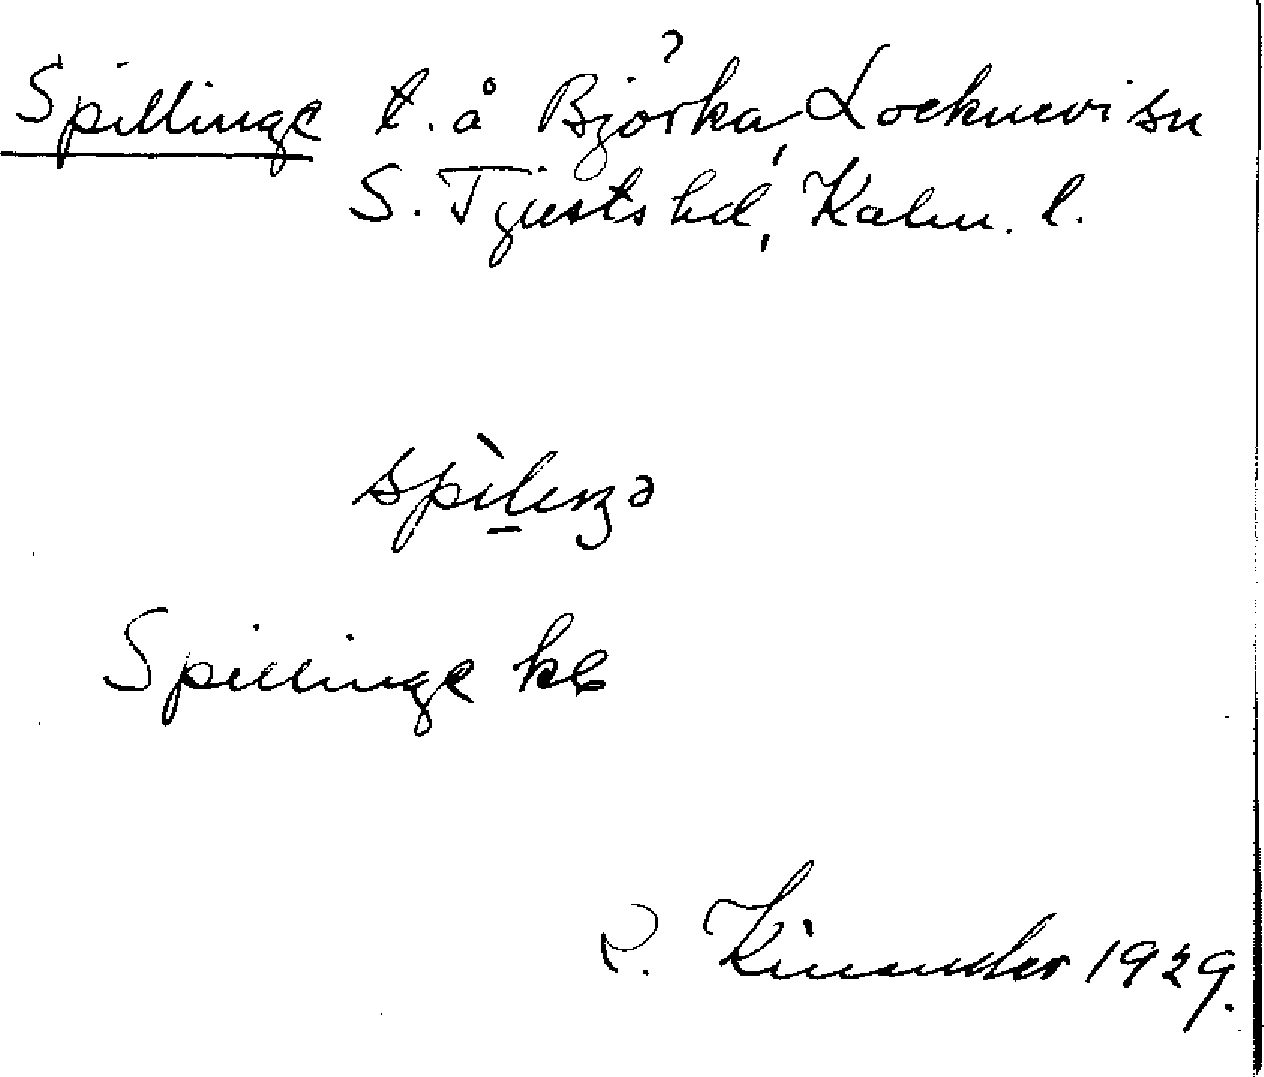 Spillinge t. å Björka, Locknevi sn
S. Tjusts hd, Kalm. l.
spìlıŋə
Spillinge kb
R. Kinander 1929.